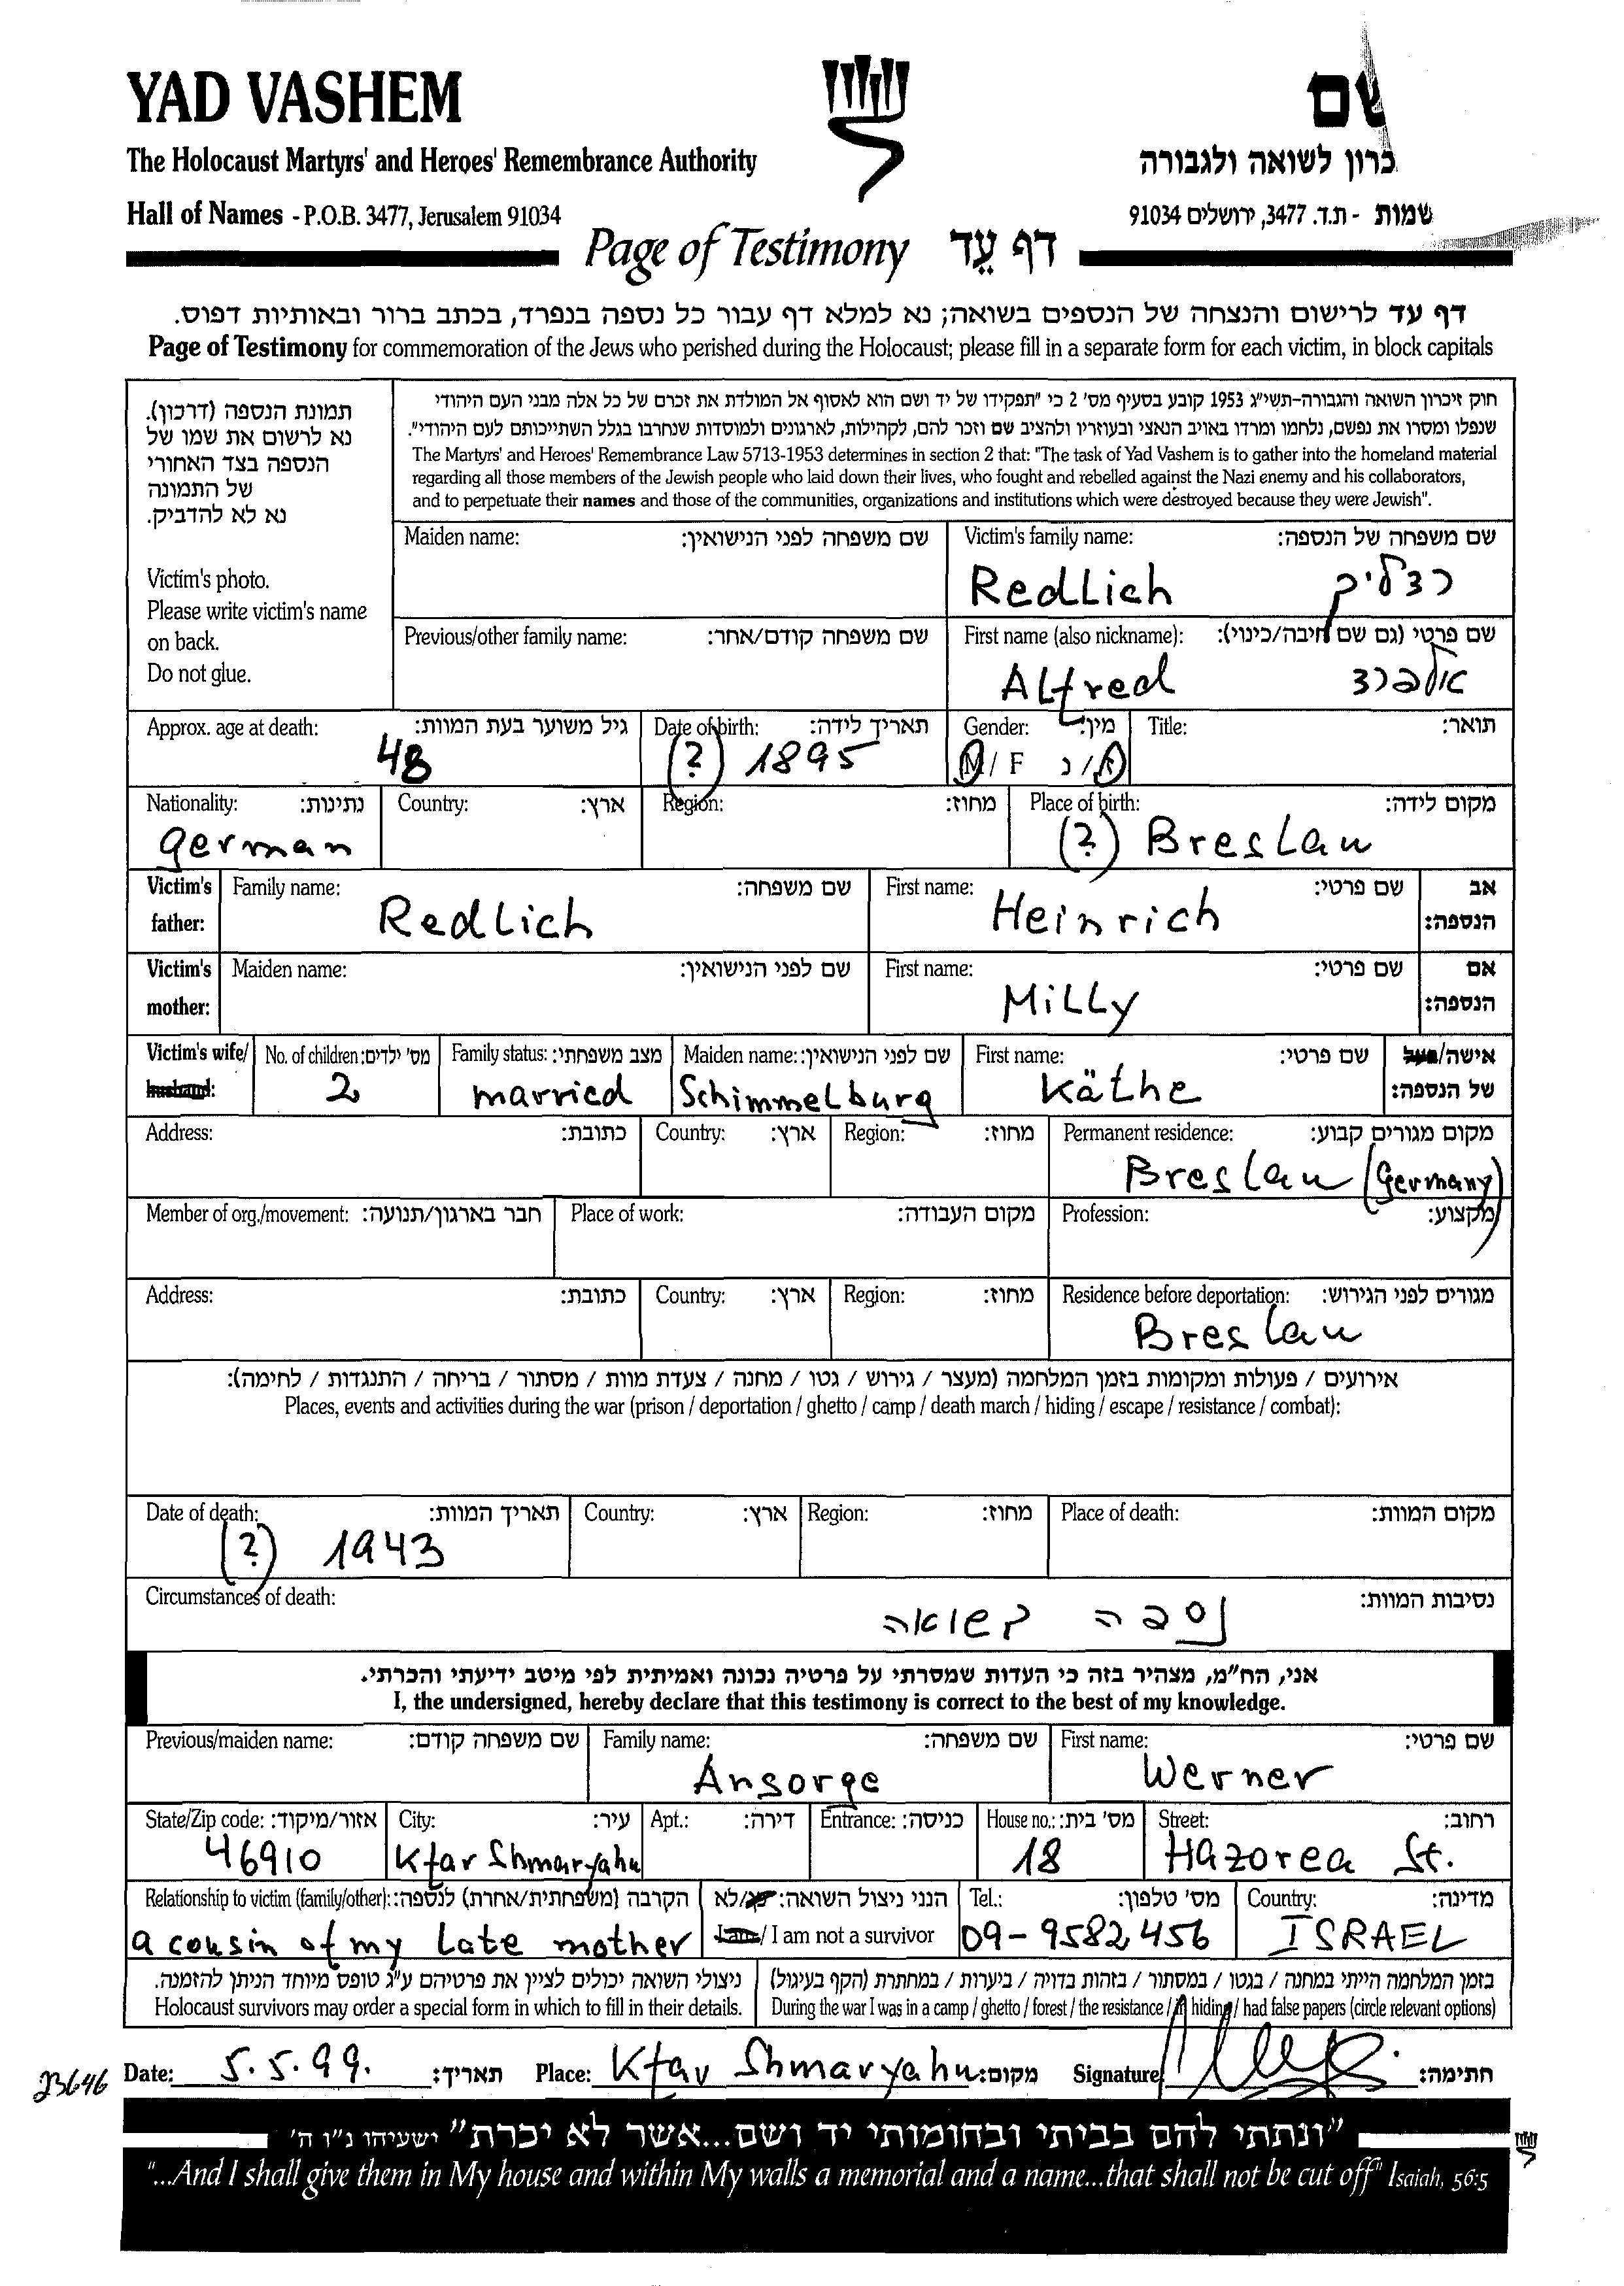 YAD VASHEM
שם
The Holocaust Martyrs' and Heroes' Remembrance Authority
כרון לשואה ולגבורה
Hall of Names - P.O.B. 3477, Jerusalem 91034
שמות - ת.ד. 3477, ירושלים 91034
Page of Testimony דף עֵד
דף עד לרישום והנצחה של הנספים בשואה; נא למלא דף עבור כל נספה בנפרד, בכתב ברור ובאותיות דפוס.
Page of Testimony for commemoration of the Jews who perished during the Holocaust; please fill in a separate form for each victim, in block capitals
תמונת הנספה (דרכון).
נא לרשום את שמו של
הנספה בצד האחורי
של התמונה
נא לא להדביק.
Victim's photo.
Please write victim's name
on back.
Do not glue.
חוק זיכרון השואה והגבורה-תשי"ג 1953 קובע בסעיף מס' 2 כי "תפקידו של יד ושם הוא לאסוף אל המולדת את זכרם של כל אלה מבני העם היהודי
שנפלו ומסרו את נפשם, נלחמו ומרדו באויב הנאצי ובעוזריו ולהציב שם וזכר להם, לקהילות, לארגונים ולמוסדות שנחרבו בגלל השתייכותם לעם היהודי".
The Martyrs' and Heroes' Remembrance Law 5713-1953 determines in section 2 that: "The task of Yad Vashem is to gather into the homeland material
regarding all those members of the Jewish people who laid down their lives, who fought and rebelled against the Nazi enemy and his collaborators,
and to perpetuate their names and those of the communities, organizations and institutions which were destroyed because they were Jewish".
Maiden name: שם משפחה לפני הנישואין: Victim's family name: שם משפחה של הנספה:
Redlich רדליך
Previous/other family name: שם משפחה קודם/אחר: First name (also nickname): שם פרטי (גם שם חיבה/כינוי):
Alfred אלפרד
Approx. age at death: גיל משוער בעת המוות: Date of birth: תאריך לידה: Gender: מין: Title: תואר:
48 (?) 1895 M / F ז / נ
Nationality: נתינות: Country: ארץ: Region: מחוז: Place of birth: מקום לידה:
german (?) Breslau
Victim's father: Family name: שם משפחה: First name: שם פרטי: אב הנספה:
Redlich Heinrich
Victim's mother: Maiden name: שם לפני הנישואין: First name: שם פרטי: אם הנספה:
Milly
Victim's wife/husband: No. of children: מס' ילדים: Family status: מצב משפחתי: Maiden name: שם לפני הנישואין: First name: שם פרטי: אישה/בעל של הנספה:
2 married Schimmelburg Käthe
Address: כתובת: Country: ארץ: Region: מחוז: Permanent residence: מקום מגורים קבוע:
Breslau (Germany)
Member of org./movement: חבר בארגון/תנועה: Place of work: מקום העבודה: Profession: מקצוע:
Address: כתובת: Country: ארץ: Region: מחוז: Residence before deportation: מגורים לפני הגירוש:
Breslau
אירועים / פעולות ומקומות בזמן המלחמה (מעצר / גירוש / גטו / מחנה / צעדת מוות / מסתור / בריחה / התנגדות / לחימה):
Places, events and activities during the war (prison / deportation / ghetto / camp / death march / hiding / escape / resistance / combat):
Date of death: תאריך המוות: Country: ארץ: Region: מחוז: Place of death: מקום המוות:
(?) 1943
Circumstances of death: נסיבות המוות:
נספה בשואה
אני, הח"מ, מצהיר בזה כי העדות שמסרתי על פרטיה נכונה ואמיתית לפי מיטב ידיעתי והכרתי.
I, the undersigned, hereby declare that this testimony is correct to the best of my knowledge.
Previous/maiden name: שם משפחה קודם: Family name: שם משפחה: First name: שם פרטי:
Ansorge Werner
State/Zip code: אזור/מיקוד: City: עיר: Apt.: דירה: Entrance: כניסה: House no.: מס' בית: Street: רחוב:
46910 Kfar Shmaryahu 18 Hazorea St.
Relationship to victim (family/other): הקרבה (משפחתית/אחרת) לנספה: הנני ניצול השואה: כן/לא Tel.: מס' טלפון: Country: מדינה:
a cousin of my late mother I am / I am not a survivor 09-9582456 ISRAEL
ניצולי השואה יכולים לציין את פרטיהם ע"ג טופס מיוחד הניתן להזמנה. בזמן המלחמה הייתי במחנה / בגטו / במסתור / בזהות בדויה / ביערות / במחתרת (הקף בעיגול)
Holocaust survivors may order a special form in which to fill in their details. During the war I was in a camp / ghetto / forest / the resistance / in hiding / had false papers (circle relevant options)
23646 Date: 5.5.99. תאריך: Place: Kfar Shmaryahu מקום: Signature: חתימה:
"ונתתי להם בביתי ובחומותי יד ושם...אשר לא יכרת" ישעיהו נ"ו ה'
"...And I shall give them in My house and within My walls a memorial and a name...that shall not be cut off" Isaiah, 56:5